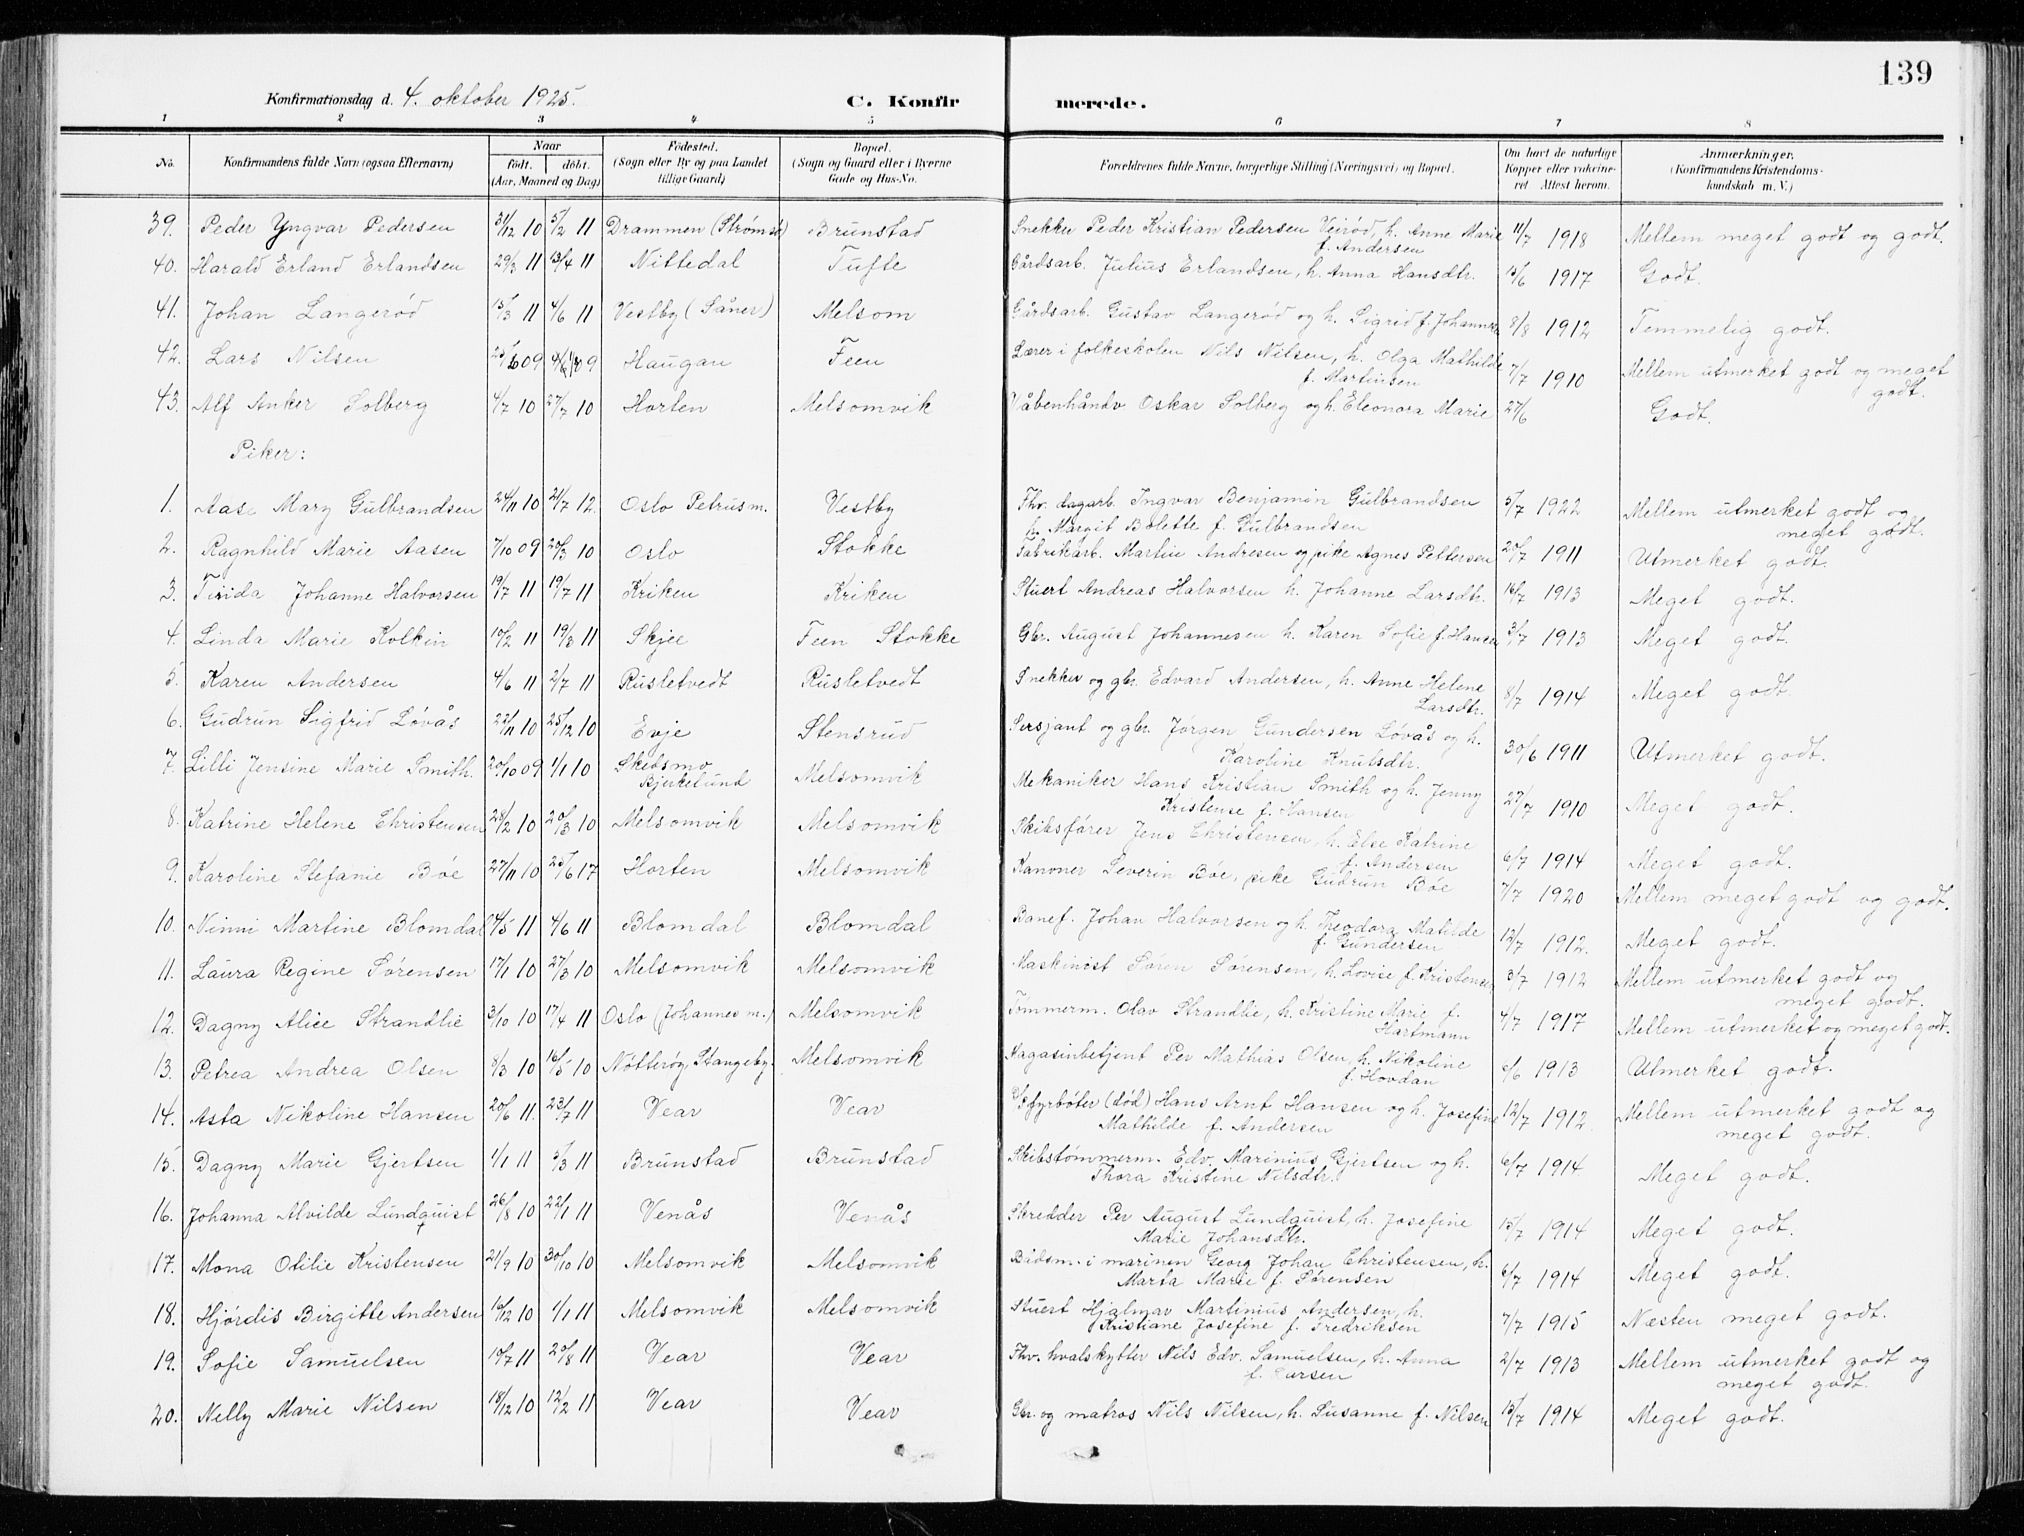 139
Konfirmationsdag d. 4. oktober 1925. C. Konfir merede.
1 2 3 4 5 6 7 8
No. Konfirmandens fulde Navn (ogsaa Efternavn) Naar født, døbt. (Aar, Maaned og Dag) Fødested. (Sogn eller By og paa Landet tillige Gaard) Bopæl. (Sogn og Gaard eller i Byerne Gade og Hus-No. Forældrenes fulde Navne, borgerlige Stilling (Næringsvei) og Bopæl. Om havt de naturlige Kopper eller vakcineret Attest herom. Anmærkninger. (Konfirmandens Kristendomskundskab m. V.)
39. Peder Yngvar Pedersen 31/12 10 5/2 11 Drammen (Strømsø) Brunstad Snekker Peder Kristian Pedersen Veirød, h. Anne Marie f. Andersen 11/7 1918 Mellem meget godt og godt.
40. Harald Erland Erlandsen 29/3 11 13/4 11 Nittedal Tufte Gårdsarb. Julius Erlandsen, h. Anna Hansdtr. 15/6 1917 Godt.
41. Johan Langerød 15/3 11 4/6 11 Vestby (Såner) Melsom Gårdsarb. Gustav Langerød og h. Sigrid f. Johannsen 8/8 1912 Temmelig godt.
42. Lars Nilsen 09 09 Haugan Feen Lærer i folkeskolen Nils Nilsen, h. Olga Mathilde f. Martinsen 7/7 1910 Mellem utmerket godt og meget godt.
43. Alf Anker Solberg 4/7 10 27/7 10 Horten Melsomvik Våbenhåndv. Oskar Solberg og h. Eleonora Marie 27/6 Godt.
Piker:
1. Aase Mary Gulbrandsen 24/11 10 21/7 12. Oslo Petrus m. Vestby Fhv. dagarb. Ingvar Benjamin Gulbrandsen h. Margit Bolette f. Gulbrandsen 5/7 1922 Mellem utmerket godt og meget godt.
2. Ragnhild Marie Aasen 7/10 09 20/3 10 Oslo Stokke Fabrikarb. Martin Andresen og pike Agnes Pettersen 20/7 1911 Utmerket godt.
3. Tirida Johanne Halvorsen 19/7 11 19/7 11 Kriken Kriken Stuert Andreas Halvorsen h. Johanne Larsdtr. 16/7 1913 Meget godt.
4. Linda Marie Kolkin 10/2 11 19/8 11 Skjee Feen Stokke Gbr. August Johannesen h. Karen Sofie f. Hansen 3/7 1913 Meget godt.
5. Karen Andersen 4/6 11 2/7 11 Rusletvedt Rusletvedt Snekker og gbr. Edvard Andersen, h. Anne Helene Larsdtr. 8/7 1914 Meget godt.
6. Gudrun Sigfrid Løvås 22/11 10 25/12 10 Evje Stensrud Sersjant og gbr. Jørgen Gundersen Løvås og h. Karoline Knutsdtr. 30/6 1911 Utmerket godt.
7. Lilli Jensine Marie Smith. 20/10 09 1/1 10 Skedsmo Bjerkelund Melsomvik Mekaniker Hans Kristian Smith og h. Jenny Kristense f. Hansen 27/7 1910 Meget godt.
8. Katrine Helene Christensen 28/2 10 20/3 10 Melsomvik Melsomvik Skibsfører Jens Christensen, h. Else Katrine f. Andersen 6/7 1914 Meget godt.
9. Karoline Stefanie Bøe 27/11 10 25/6 17 Horten Melsomvik Kanoner Severin Bøe, pike Gudrun Bøe 7/7 1920 Mellem meget godt og godt.
10. Ninni Martine Blomdal 14/5 11 4/6 11 Blomdal Blomdal Banef. Johan Halvorsen og h. Theodora Matilde f. Gundersen 12/7 1912. Meget godt.
11. Laura Regine Sørensen 17/1 10 27/3 10 Melsomvik Melsomvik Maskinist Søren Sørensen, h. Lovise f. Kristensen 3/7 1912 Mellem utmerket godt og meget godt.
12. Dagny Alice Strandlie 3/10 10 17/4 11 Oslo (Johannes m.) Melsomvik Tømmerm. Olav Strandlie, h. Kristine Marie f. Hartmann 4/7 1917 Mellem utmerket og meget godt.
13. Petrea Andrea Olsen 8/3 10 16/5 10 Nøtterøy, Stangeby. Melsomvik Magasinbetjent Per Mathias Olsen, h. Nikoline f. Hovdan 6/6 1913 Utmerket godt.
14. Asta Nikoline Hansen 20/6 11. 23/7 11 Vear Vear fyrbøter (død) Hans Arnt Hansen og h. Josefine Mathilde f. Andersen 12/7 1912. Mellem utmerket godt og meget godt.
15. Dagny Marie Gjertsen 1/1 11 5/3 11 Brunstad Brunstad Skibstømmerm. Edv. Marinius Gjertsen og h. Thora Kristine Nilsdtr. 6/7 1914 Meget godt.
16. Johanna Alvilde Lundquist 26/8 10 22/1 11 Venås Venås Skredder Per August Lundquist, h. Josefine Marie Johansdtr. 15/7 1914 Meget godt.
17. Mona Otilie Kristensen 21/9 10 30/10 10 Melsomvik Melsomvik Bådsm. i marinen Georg Johan Christensen, h. Marta Marie f. Sørensen 6/7 1914 Meget godt.
18. Hjørdis Birgitte Andersen 16/12 10 1/1 11 Melsomvik Melsomvik Stuert Hjalmar Martinius Andersen, h. Kristiane Josefine f. Fredriksen 7/7 1915 Næsten meget godt.
19. Sofie Samuelsen 10/7 11 20/8 11 Vear Vear Fhv. hvalskytter Nils Edv. Samuelsen, h. Anna f. Larsen 2/7 1913 Mellem utmerket godt og meget godt.
20. Nelly Marie Nilsen 18/12 10 12/2 11 Vear Vear Gbr. og matros Nils Nilsen, h. Susanne f. Nilsen 15/7 1914 Meget godt.